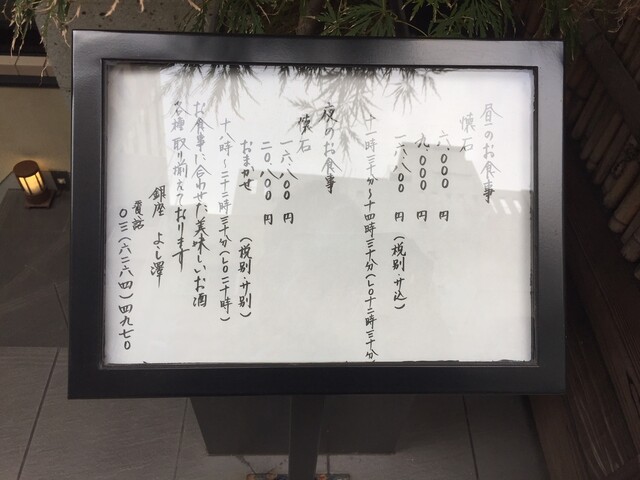 昼のお食事
懐石
六.000 円
九.000 円
一六.八00 円 (税別・サ込)
十一時三十分〜十四時三十分(LO十二時三十分
夜のお食事
懐石
一六.八00 円
おまかせ
二0.八00 円 (税別・サ別)
十八時〜二十二時三十分(LO二十時)
お食事に合わせた美味しいお酒
各種取り揃えております
銀座 よし澤
電話
0三(六二六四)四九七0